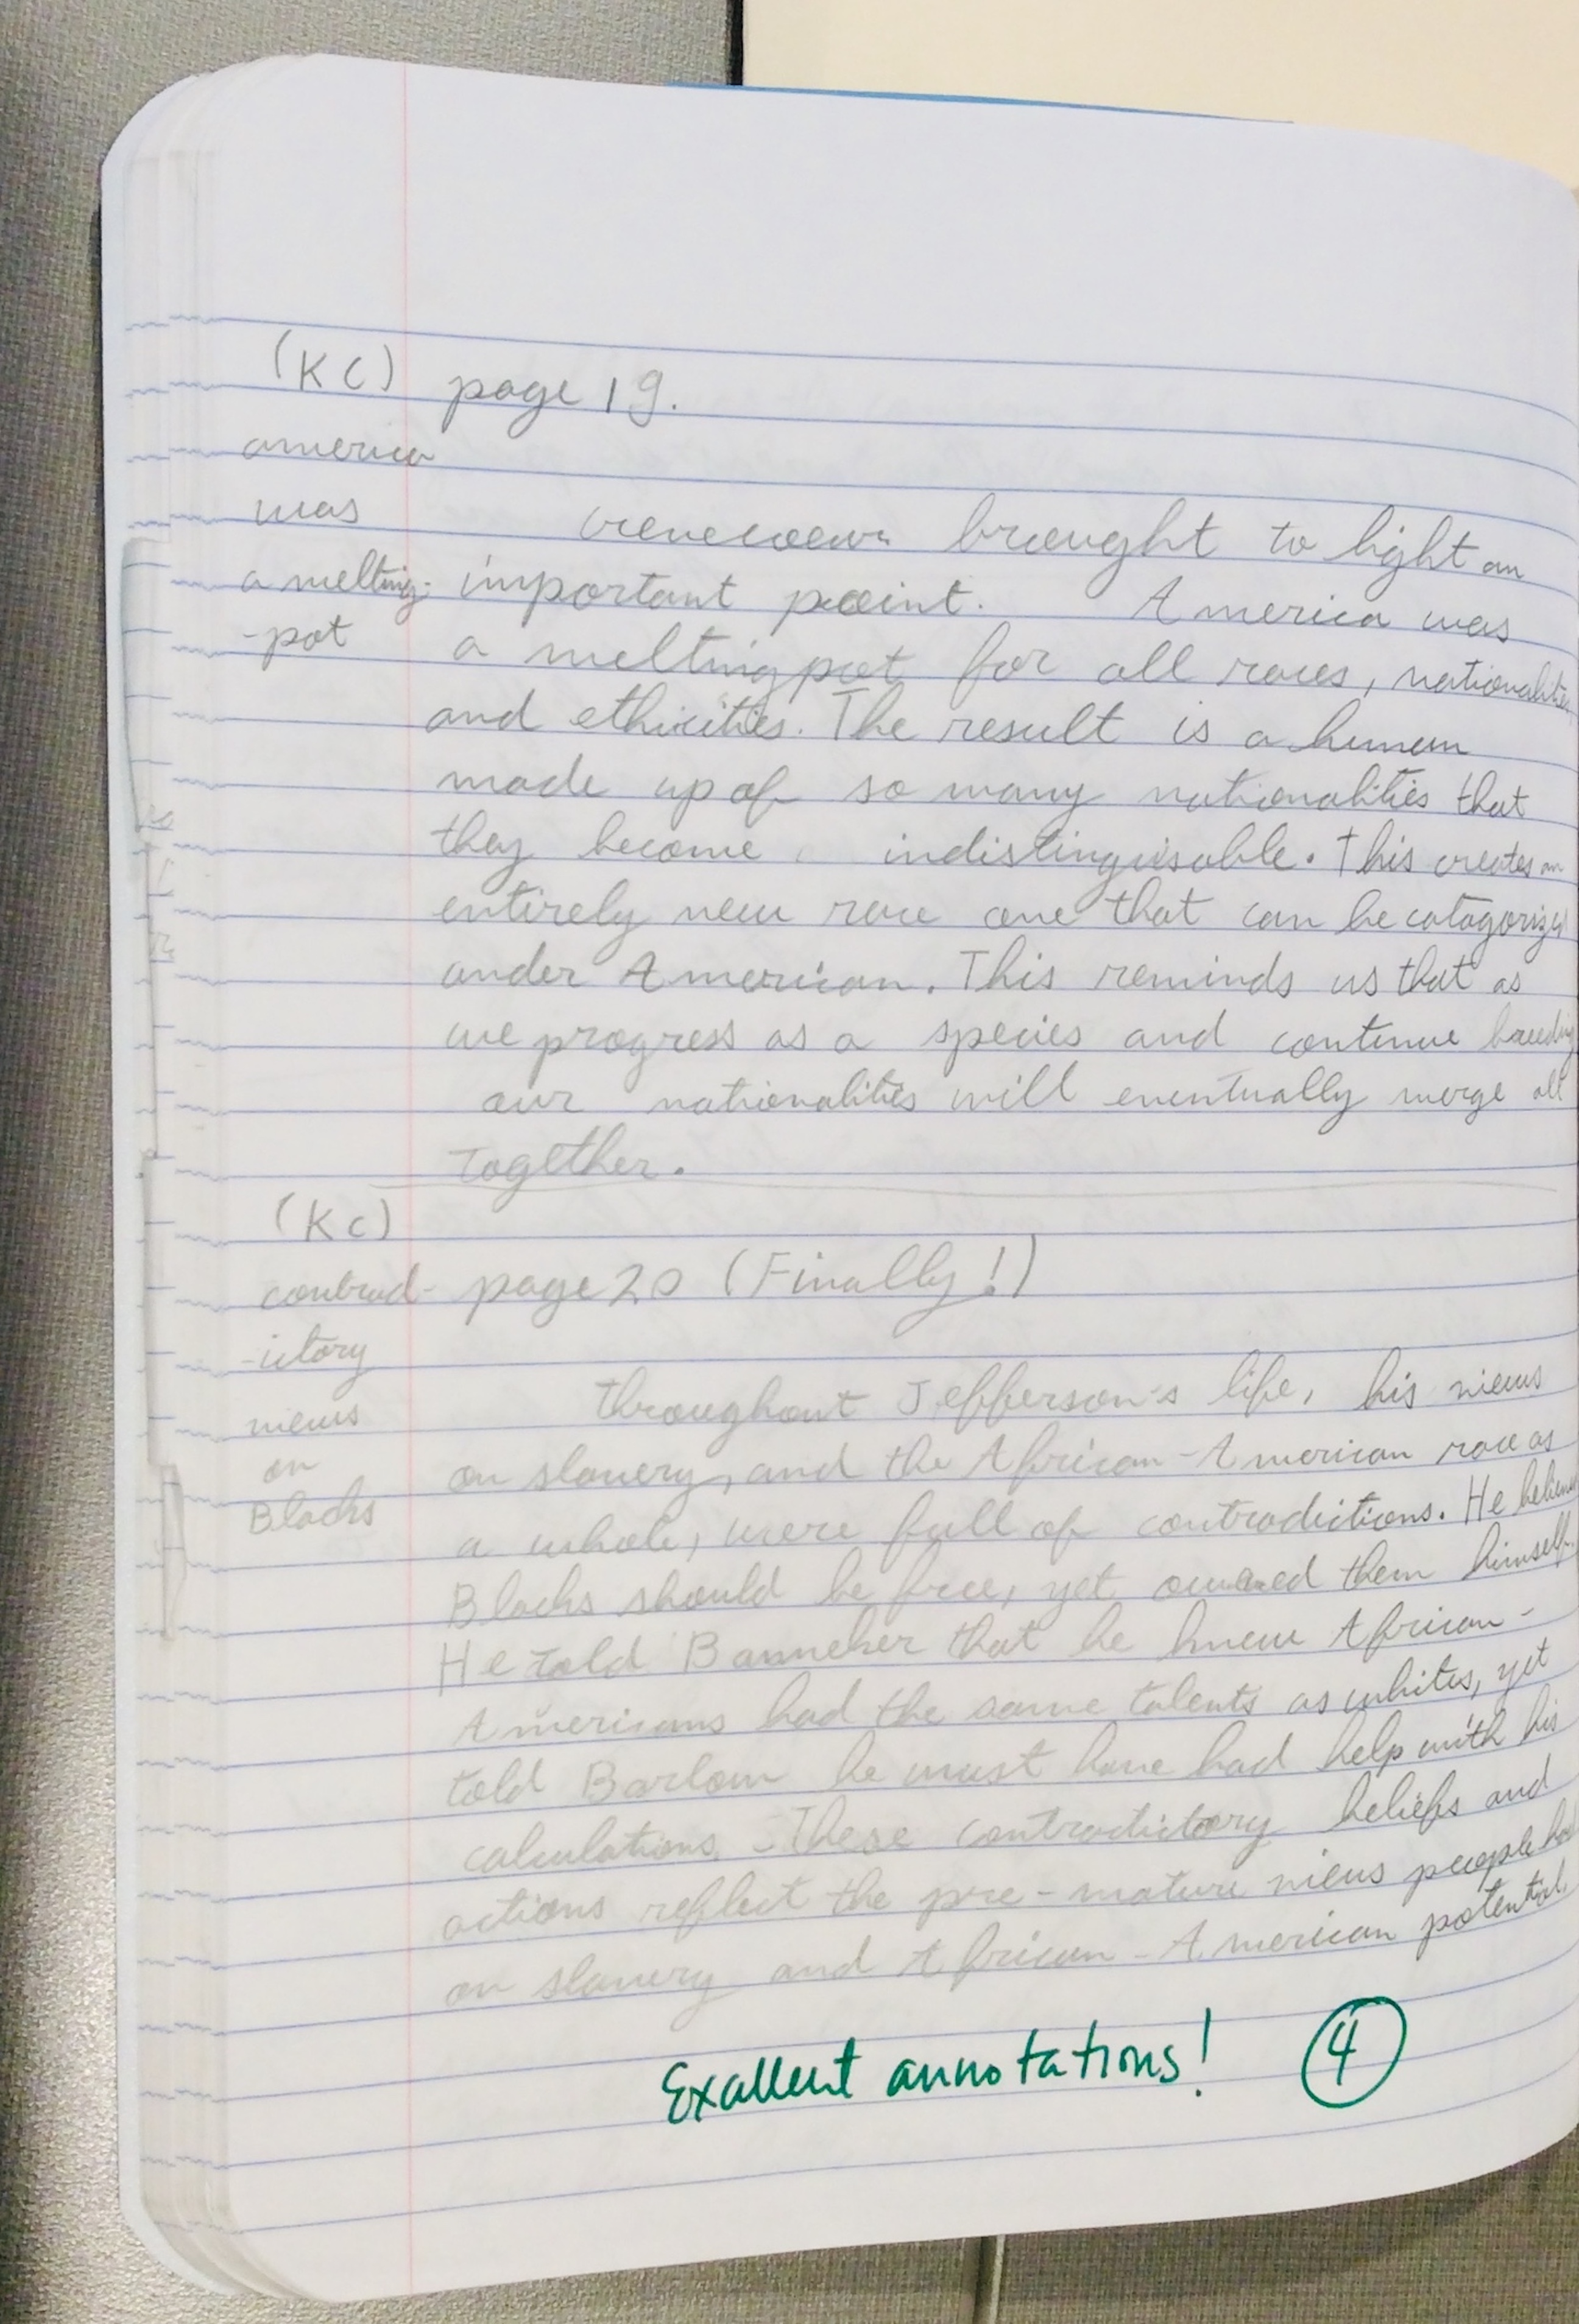 (KC) page 19.
america
was
a melting-
-pot
brought to light an
important point. America was
a meltingpot for all races, nationalities,
and ethicities. The result is a human
made up of so many nationalities that
they become indistinguisable. This creates an
entirely new race one that can be catagorized
under American. This reminds us that as
we progress as a species and continue breeding
our nationalities will eventually merge all
together.
(KC)
contrad-
-ictory
views
on
Blacks
page 20 (Finally!)
Throughout Jefferson's life, his views
on slavery, and the African-American race as
a whole, were full of contradictions. He believed
Blacks should be free, yet owned them himself.
He told Banneker that he knew African-
Americans had the same talents as whites, yet
told Barlow he must have had help with his
calculations. These contradictory beliefs and
actions reflect the pre-mature views people had
on slavery and African-American potential.
Excellent annotations! 4